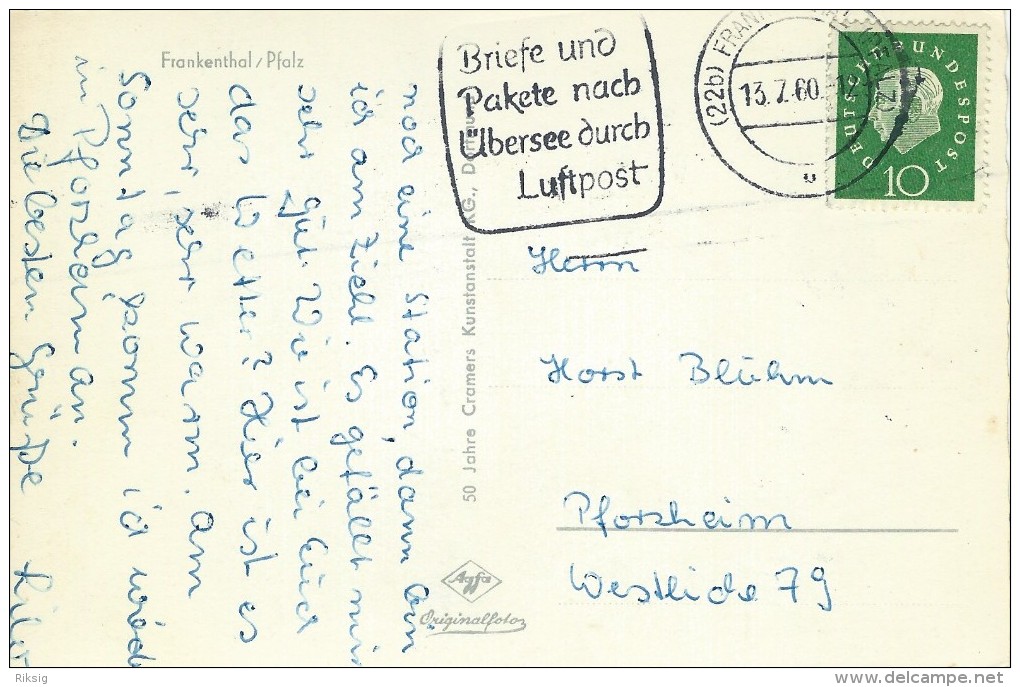 Frankenthal/Pfalz
Briefe und
Pakete nach
Übersee durch
Luftpost
(22b) FRANK
13.7.60.-12
DEUTSCHE BUNDESPOST
10
noch eine Station, dann bin
ich am Ziehl. Es gefällt mir
sehr gut. Wie ist bei Euch
das Wetter? Hier ist es
serr, serr warm. am
Sonntag komm ich wied
in Pforzheim an.
Die besten Grüße
50 Jahre Cramers Kunstanstalt KG.,
Agfa
Originalfoto
Herrn
Horst Blühm
Pforzheim
Westliche 79
Riksig
www.delcampe.net